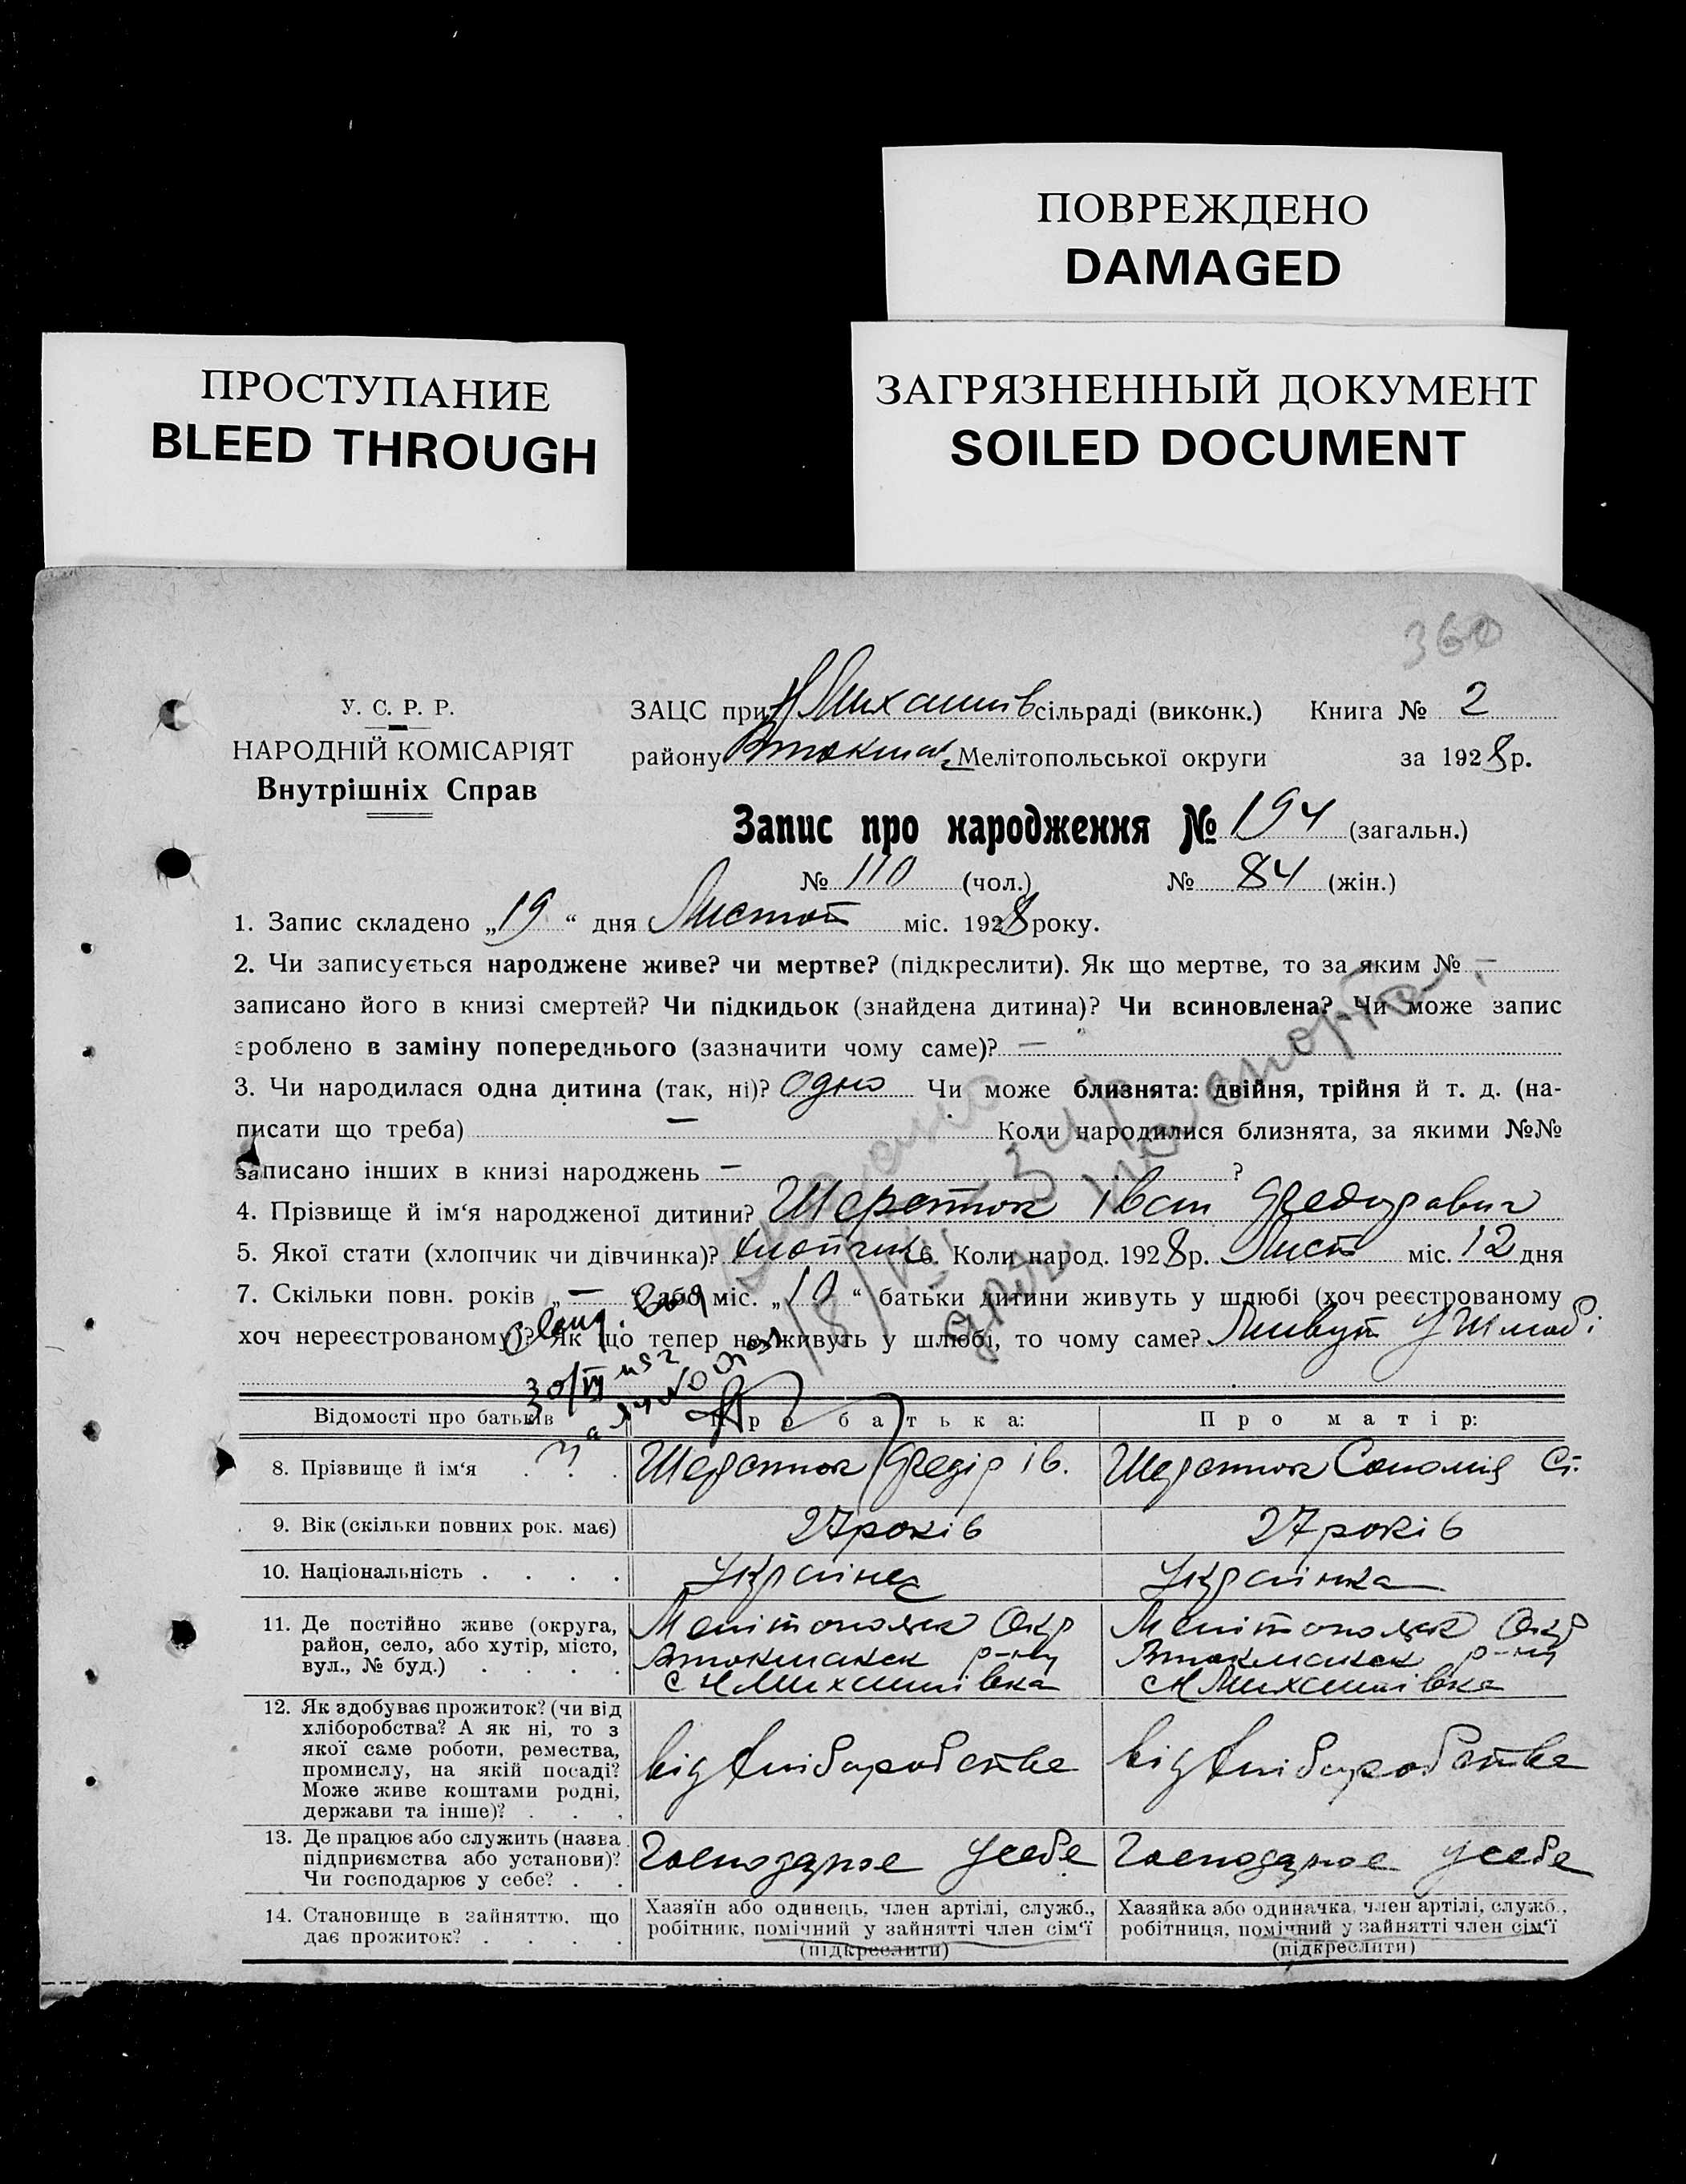 ПОВРЕЖДЕНО
DAMAGED
ПРОСТУПАНИЕ
BLEED THROUGH
ЗАГРЯЗНЕННЫЙ ДОКУМЕНТ
SOILED DOCUMENT
360
У. С. Р. Р.
НАРОДНІЙ КОМІСАРІЯТ
Внутрішніх Справ
ЗАЦС при Н Михайлів сільраді (виконк.) Книга № 2
району Втокмак Мелітопольської округи за 1928 р.
Запис про народження № 194 (загальн.)
№ 110 (чол.) № 84 (жін.)
1. Запис складено „19“ дня Листоп міс. 1928 року.
2. Чи записується народжене живе? чи мертве? (підкреслити). Як що мертве, то за яким № —
записано його в книзі смертей? Чи підкидьок (знайдена дитина)? Чи всиновлена? Чи може запис
зроблено в заміну попереднього (зазначити чому саме)? —
3. Чи народилася одна дитина (так, ні)? одно Чи може близнята: двійня, трійня й т. д. (на-
писати що треба) — Коли народилися близнята, за якими №№
записано інших в книзі народжень — ?
4. Прізвище й ім‘я народженої дитини? Іван Федорович
5. Якої стати (хлопчик чи дівчинка)? хлопчик 6. Коли народ. 1928 р. Лист міс. 12 дня
7. Скільки повн. років „—“ або міс. „10“ батьки дитини живуть у шлюбі (хоч реєстрованому
хоч нереєстрованому)? Як що тепер не живуть у шлюбі, то чому саме? Живут у шлюбі
Відомості про батьків Про батька: Про матір:
8. Прізвище й ім‘я . . . Федір Ів. Соломія Ст.
9. Вік (скільки повних рок. має) 27 років 27 років
10. Національність . . . . Українец Українка
11. Де постійно живе (округа,
район, село, або хутір, місто,
вул., № буд.) . . . .
Мелітопольск Окр
Втокмакск р-ну
с Н Михайлівка
Мелітопольск Окр
Втокмакск р-ну
с Н Михайлівка
12. Як здобуває прожиток? (чи від
хліборобства? А як ні, то з
якої саме роботи, ремества,
промислу, на якій посаді?
Може живе коштами родні,
держави та інше)? . . .
від хліборобства
від хліборобства
13. Де працює або служить (назва
підприємства або установи)?
Чи господарює у себе? . .
Господарює у себе
Господарює у себе
14. Становище в зайняттю, що
дає прожиток? . . . .
Хазяїн або одинець, член артілі, служб.,
робітник, помічний у зайнятті член сім‘ї
(підкреслити)
Хазяйка або одиначка, член артілі, служб.,
робітниця, помічний у зайнятті член сім‘ї
(підкреслити)